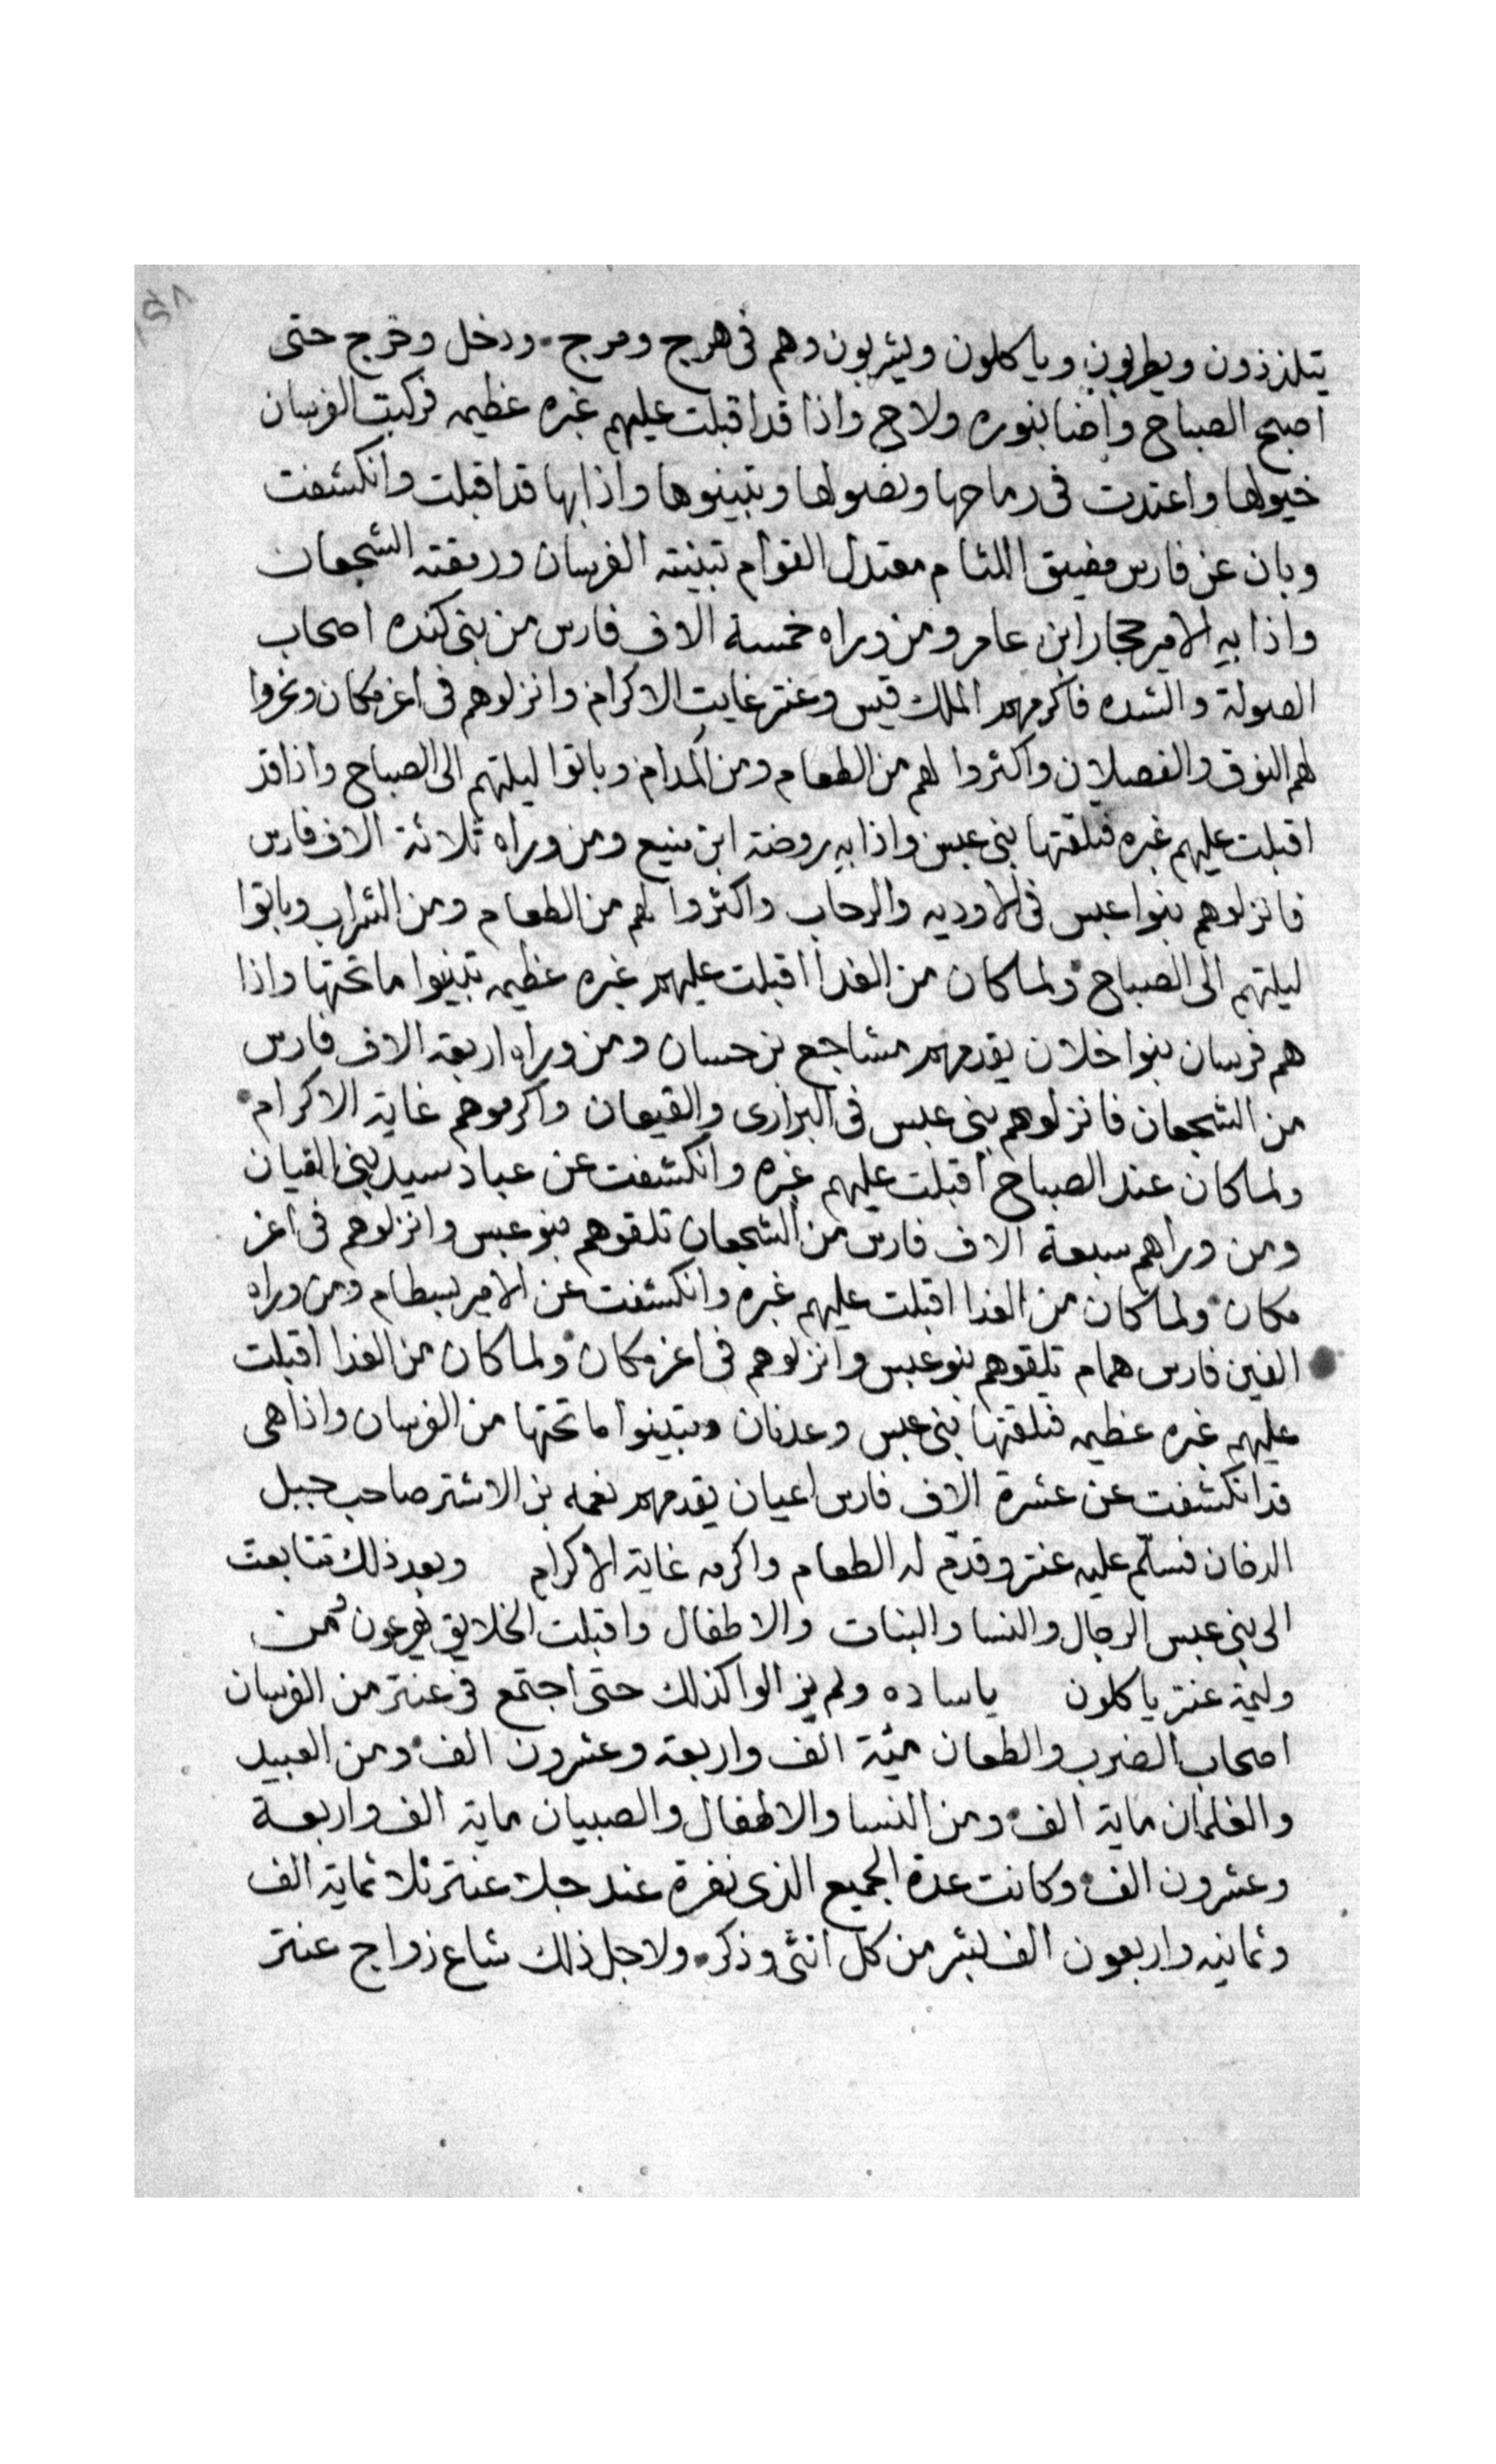 يتلذذون ويطربون وياكلون ويشربون وهم فى هرج ومرج ودخل وخرج حتى
اصبح الصباح واضا بنوره ولاح واذا قد اقبلت عليهم غبره عظيمه فركبت الفرسان
خيولها واعتدت فى رماحها ونصولها وتبينوها واذا بها قد اقبلت وانكشفت
وبان عن فارس مضيق اللثام معتدل القوام تبينته الفرسان ورمقته الشجعان
واذا به الامير حجار ابن عامر ومن وراه خمسة الاف فارس من بنى كنده اصحاب
الصولة والشده فاكرمهم الملك قيس وعنتر غايت الاكرام وانزلوهم فى اعز مكان ونحروا
لهم النوق والفصلان واكثروا لهم من الطعام ومن المدام وباتوا ليلتهم الى الصباح واذا قد
اقبلت عليهم غبره فتلقتها بنى عبس واذا به روضة ابن منيع ومن وراه ثلاثة الاف فارس
فانزلوهم بنوا عبس فى الاوديه والرحاب واكثروا لهم من الطعام ومن الشراب وباتوا
ليلتهم الى الصباح ولما كان من الغدا اقبلت عليهم غبره عظيمه تبينوا ما تحتها واذا
هم فرسان بنوا خلان يقدمهم مشاجع بن حسان ومن وراه اربعة الاف فارس
من الشجعان فانزلوهم بنى عبس فى البرارى والقيعان واكرموهم غاية الاكرام
ولما كان عند الصباح اقبلت عليهم غبره وانكشفت عن عباد سيد بنى القيان
ومن وراهم سبعة الاف فارس من الشجعان تلقوهم بنو عبس وانزلوهم فى اعز
مكان ولما كان من الغدا اقبلت عليهم غبره وانكشفت عن الامير بسطام ومن وراه
الفين فارس همام تلقوهم بنو عبس وانزلوهم فى اعز مكان ولما كان من الغدا اقبلت
عليهم غبره عظيمه فتلقتها بنى عبس وعدنان وتبينوا ما تحتها من الفرسان واذا هى
قد انكشفت عن عشرة الاف فارس اعيان يقدمهم نعمه بن الاشتر صاحب جبل
الدخان فسلم عليه عنتر وقدم له الطعام واكرمه غاية الاكرام وبعد ذلك تتابعت
الى بنى عبس الرجال والنسا والبنات والاطفال واقبلت الخلايق يهرعون ومن
وليمة عنتر ياكلون ياساده ولم يزالوا كذلك حتى اجتمع فى عنتر من الفرسان
اصحاب الضرب والطعان مية الف واربعة وعشرون الف ومن العبيد
والغلمان ماية الف ومن النسا والاطفال والصبيان ماية الف واربعة
وعشرون الف وكانت عدة الجميع الذى نفرة عند جلا عنتر ثلاثماية الف
وثمانيه واربعون الف بشر من كل انثى وذكر ولاجل ذلك شاع زواج عنتر